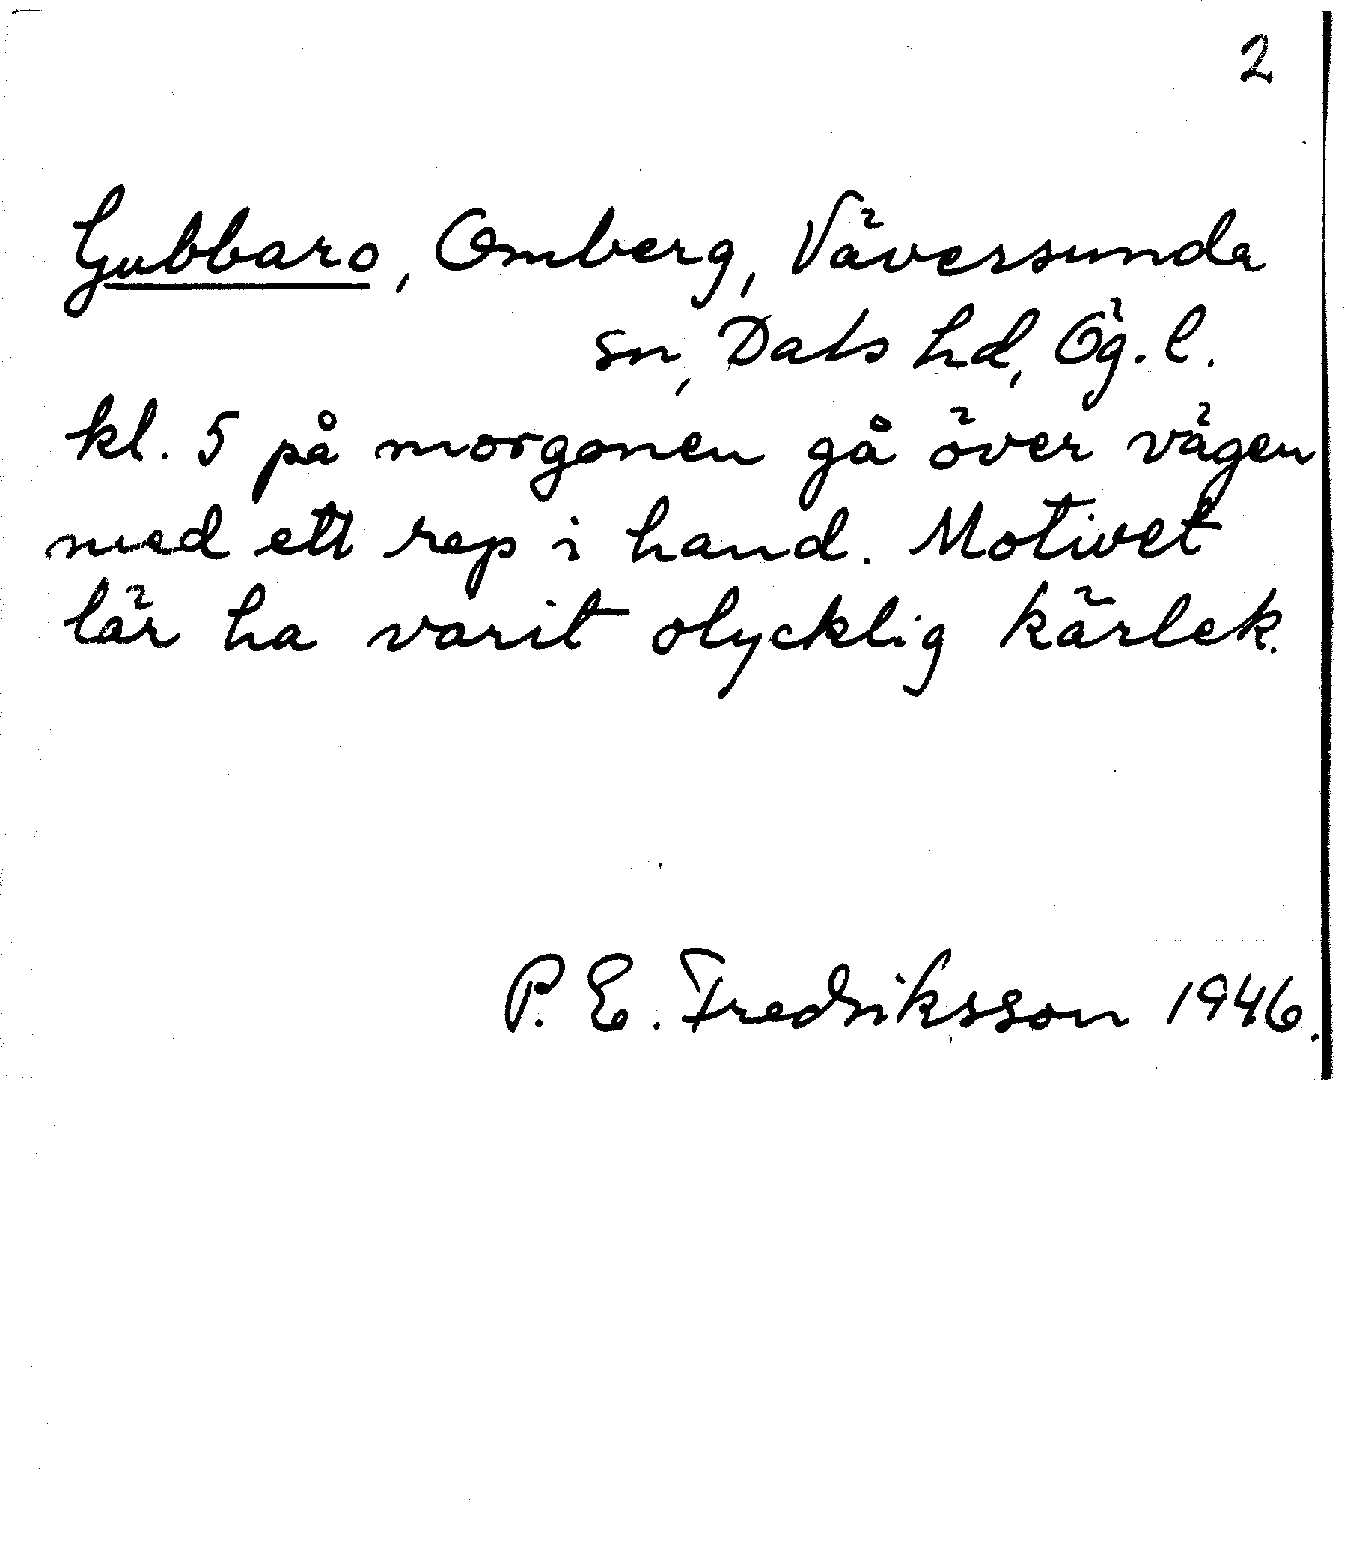 2
Gubbaro, Omberg, Väversunda
sn, Dals hd, Ög. l.
kl. 5 på morgonen gå över vägen
med ett rep i hand. Motivet
lär ha varit olycklig kärlek.
P. E. Fredriksson 1946.